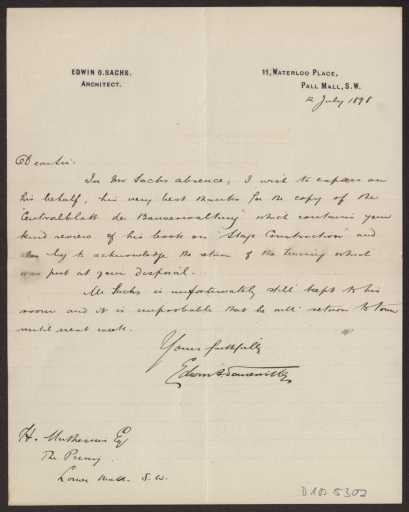 EDWIN O. SACHS.
ARCHITECT.
11, WATERLOO PLACE,
PALL MALL, S.W.
2 July 1898
Dear Sir.
In Mr Sachs absence, I wish to express on
his behalf, his very best thanks for the copy of the
"Centralblatt der Bauverwaltung" which contains your
kind review of his book on "Stage Construction" and
beg to acknowledge the return of the tracing which
was put at your disposal.
Mr Sachs is unfortunately still kept to his
room and it is improbable that he will return to town
until next week.
Yours faithfully
Edwin
H. Muthesius Eq
The Priory
Lower Mall. S.W.